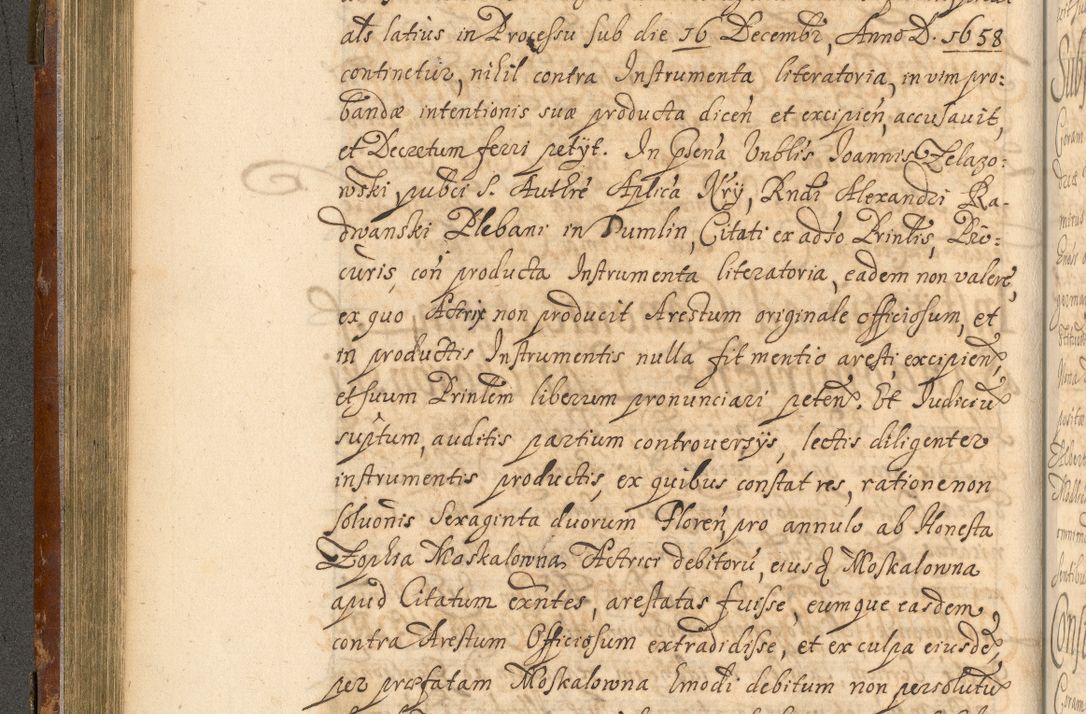 als latius in Processu sub die 16 Decembr, Anno D. 1658
continetur, nihil contra Instrumenta literatoria, in vim pro:
bandæ intentionis suæ producta dicen̄ et excipien̄, accusavit,
et Decretum ferri petÿt. In p̄sen̄a Vnblis Joannis Zelazo:
wski pubci S. Authre Aplica Nrÿ, Rndi Alexandri Ra-
dwanski Plebani in Dumlin, Citati ex adso Prinlis, Pro:
curis, con̄ producta Instrumenta literatoria, eadem non valere,
ex quo Actrix non producit Arestum originale officiosum, et
in productis Instrumentis nulla fit mentio aresti, excipien̄,
et suum Prinlem liberum pronunciari peten̄. Et Judiciū
suptum, auditis partium controversÿs, lectis diligenter
instrumentis productis, ex quibus constat res, ratione non
soluonis Sexaginta duorum Floren̄, pro annulo ab Honesta
Zophia Moskalowna Actrici debitorū, eiusq̄ Moskalowna
apud Citatum exn̄tes, arestatas fuisse, eumque easdem
contra Arestum Officiosum extradidisse, et ex culpa eiusdē,
per præfatam Moskalowna Emodi debitum non persolutū